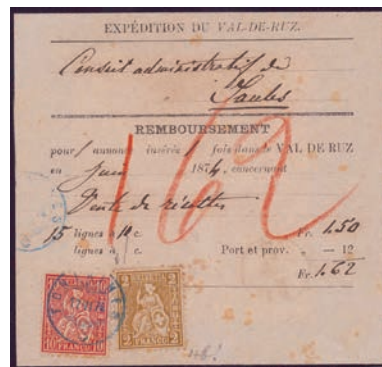 EXPÉDITION DU VAL-DE-RUZ.
Conseil administratif de
Saules
REMBOURSEMENT
pour 1 annonce insérée 1 fois dans le VAL DE RUZ
en Juin 1874, concernant
Vente de récoltes
162
15 lignes à 10 c. Fr. 1.50
lignes à c. Port et prov. „ — 12
Fr. 1.62
10 FRANCO 10
2 FRANCO 2